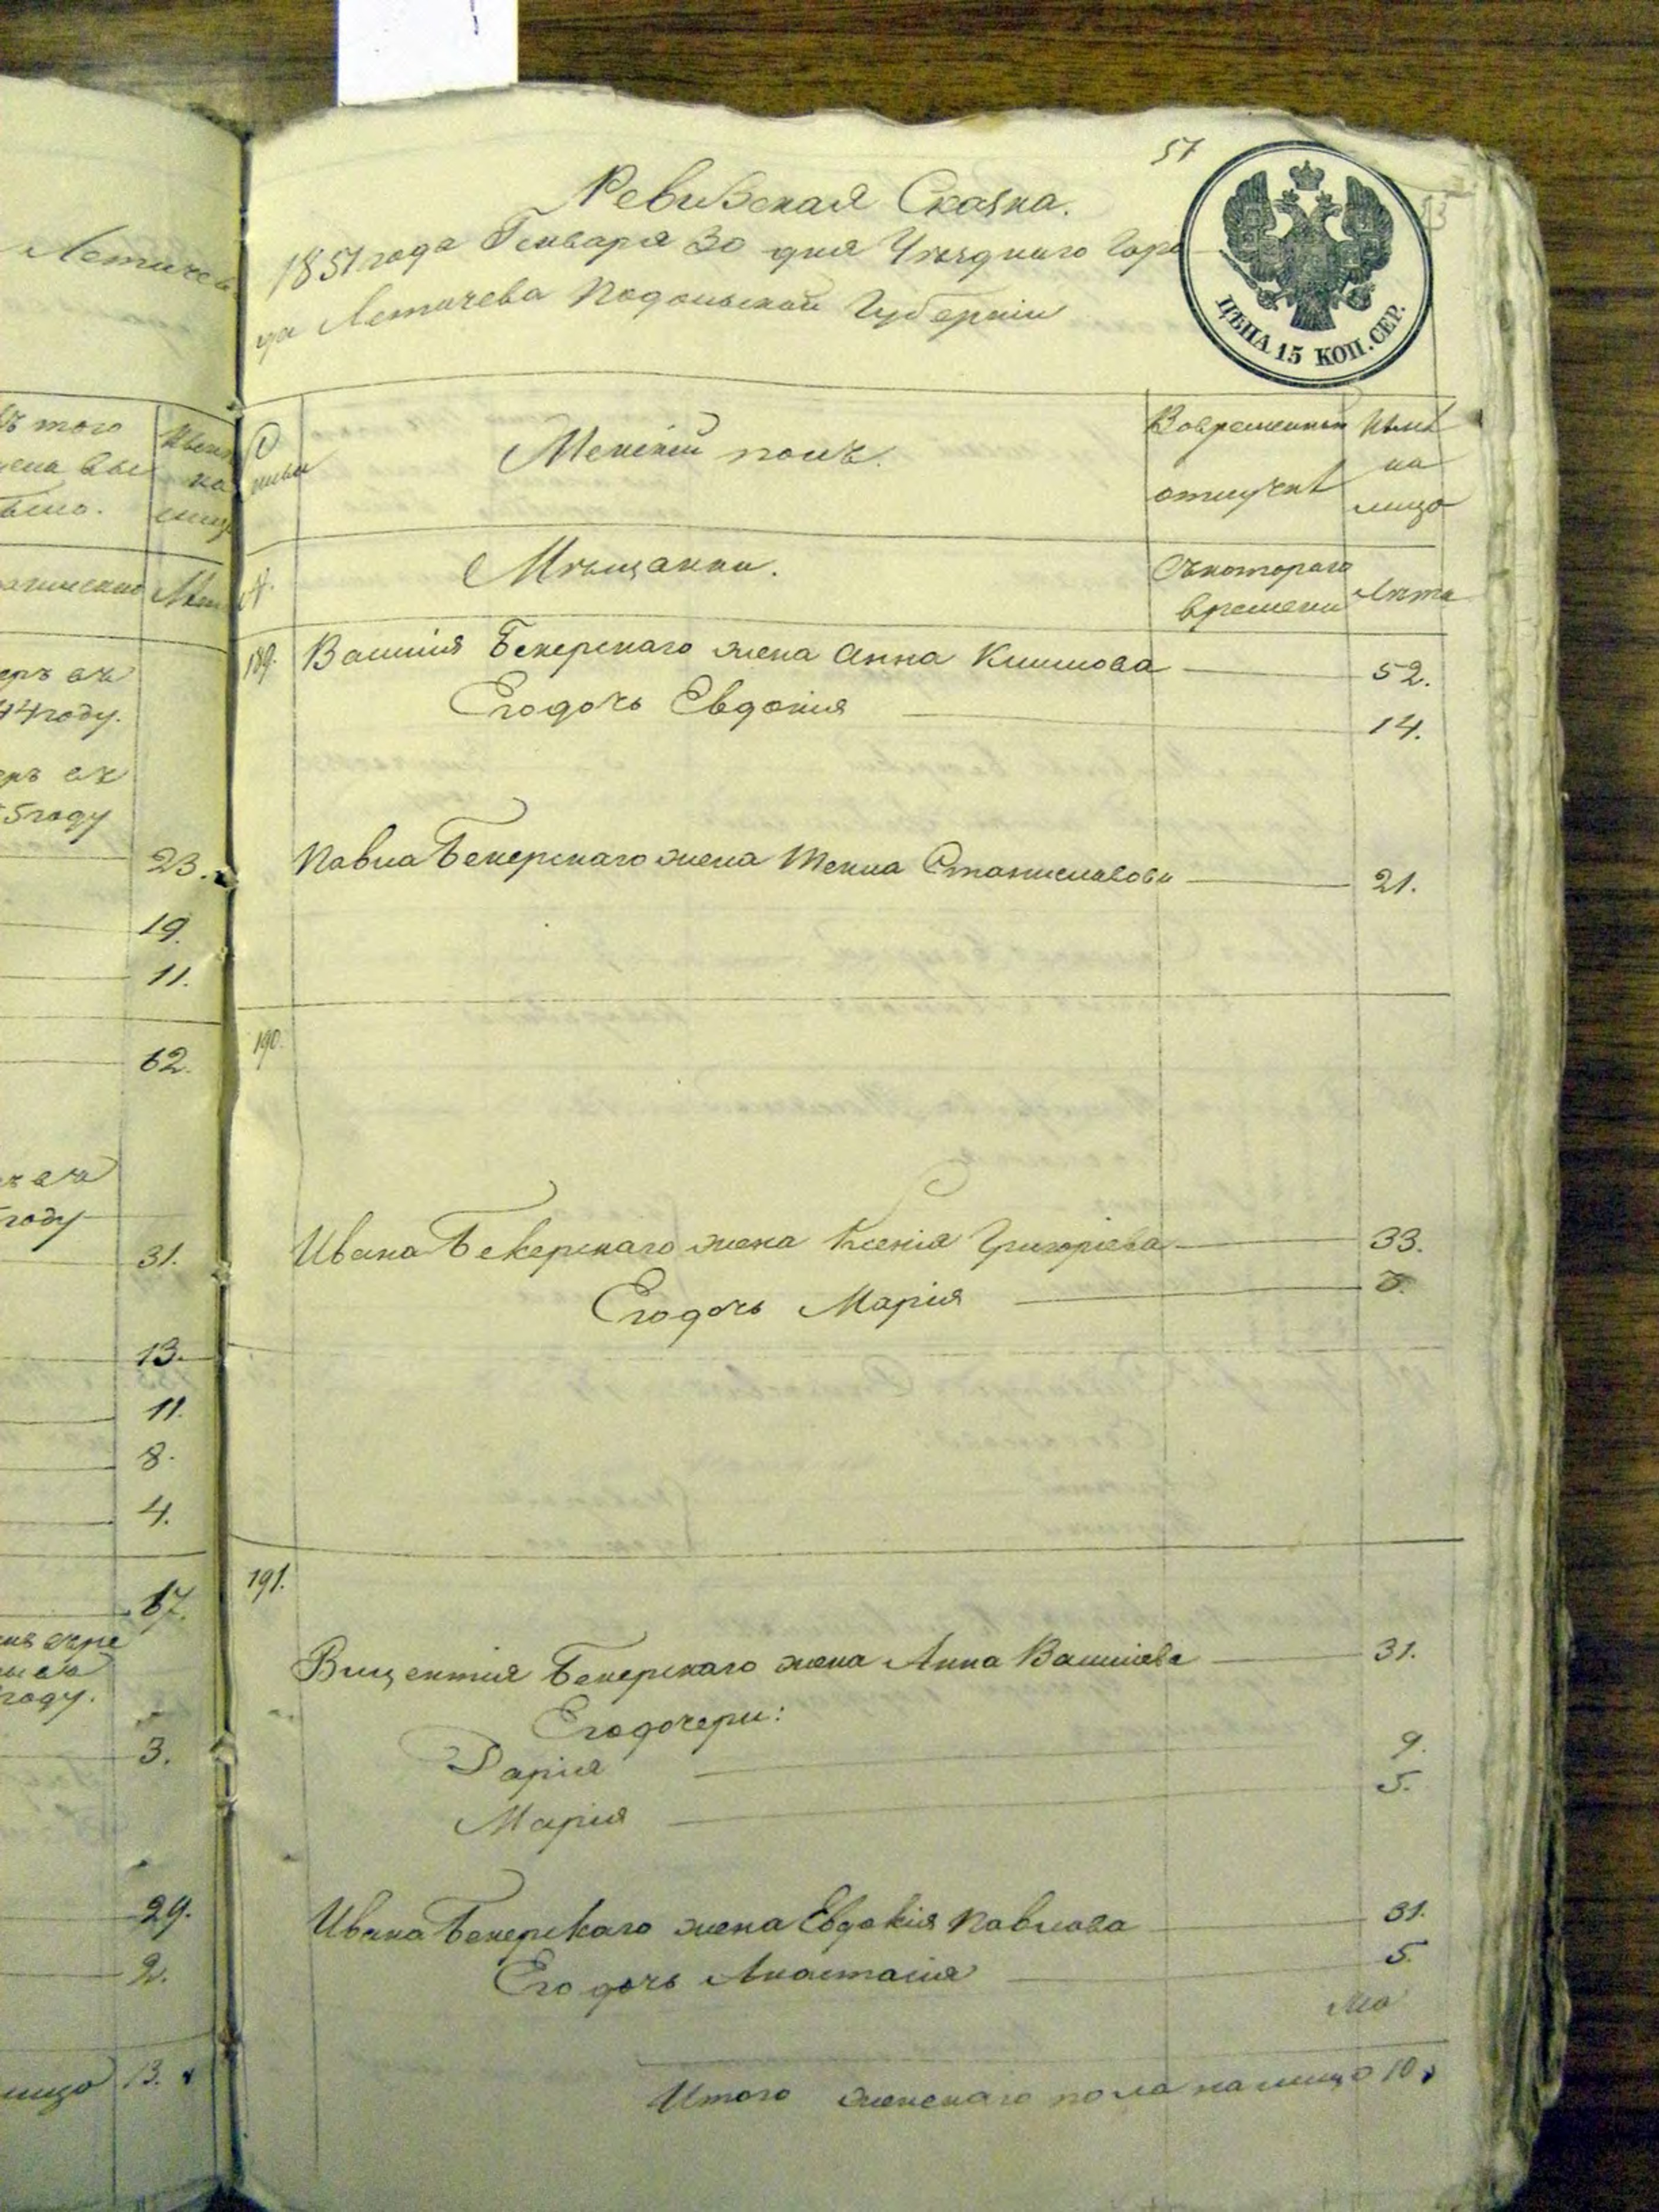 Летичев
ъ того
на
было.
году.
5 году
23.
19.
11.
62.
году
31.
13.
11.
8.
4.
67.
году.
3.
29.
2.
лицо 13.
57
Ревизская Сказка.
1851 года Генваря 30 дня Уѣзднаго Горо
да Летичева Подольской Губерніи
ЦѢНА 15 КОП. СЕР.
Женскій полъ.
Во временной
отлучкѣ
Нынѣ
на
лицо
№.
Мѣщанки.
Съ котораго
времени
Лѣта
189. Василія Бекерскаго жена Анна Климова 52.
Его дочь Евдокія 14.
Павла Бекерскаго жена Текла Станиславова 21.
190.
Ивана Бекерскаго жена Ксенія Григоріева 33.
Его дочь Марія
191.
Вицентія Бекерскаго жена Анна Василіева 31.
Его дочери:
Дарія 9.
Марія 5.
Ивана Бекерскаго жена Евдокія Павлова 31.
Его дочь Анастасія 5.
Итого женскаго пола на лицо 10